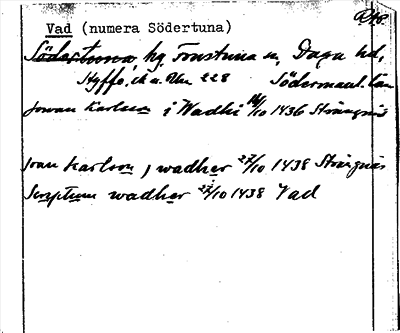 Vad (numera Södertuna)
Södertuna, hg, Frustuna sn, Daga hd,
Hyffo, ck a. Um 228 Södermanl. län
Jowan Karlsson i Wadhi 14/10 1436 Strängnäs
Joan Karlson j wadher 27/10 1438 Strängnäs
Scriptum wadher 27/10 1438 Vad